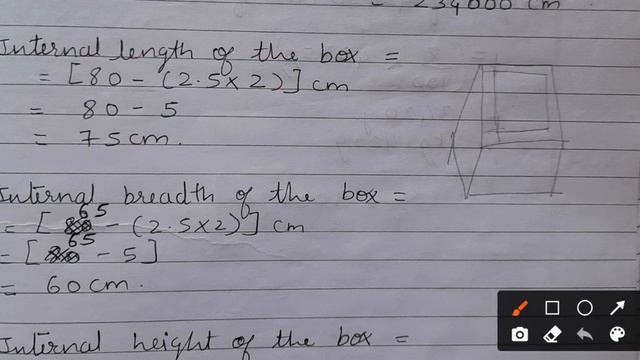 = 234000 cm
Internal length of the box =
= [80 - (2.5 × 2)] cm
= 80 - 5
= 75 cm.
Internal breadth of the box =
= [65 - (2.5 × 2)] cm
= [65 - 5]
= 60 cm.
Internal height of the box =